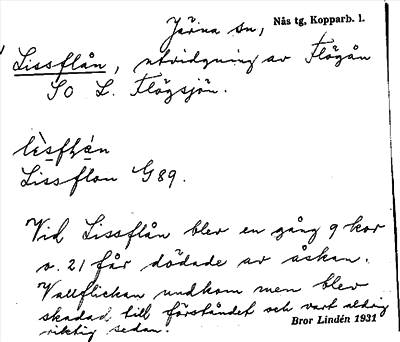 Järna sn, Nås tg, Kopparb. l.
Lissflån, utvidgning av Flögån
SO L. Flögsjön.
Lissflon G89.
Vid Lissflån blev en gång 9 kor
o. 21 får dödade av åskan.
Vallflickan undkom men blev
skadad till förståndet och vart aldrig
riktig sedan. Bror Lindén 1931